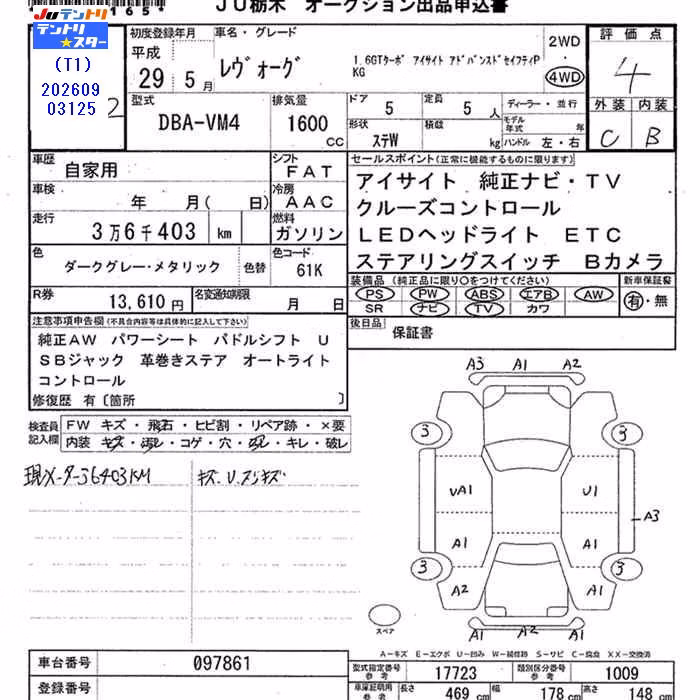 165*
JU栃木 オークション出品申込書
JUテントリ
テントリ★スター
(T1)
202609
03125
2
初度登録年月
平成
29 5月
車名・グレード
レヴォーグ
1.6GTターボ アイサイト アドバンスドセイフティP
KG
2WD
・
4WD
評価点
4
外装 内装
C B
型式
DBA-VM4
排気量
1600
CC
ドア
5
定員
5人
形状
ステW
積載
kg
ディーラー・並行
モデル年式 年
ハンドル 左・右
車歴
自家用
シフト
FAT
車検
年 月( 日)
冷房
AAC
走行
3万6千403 km
燃料
ガソリン
色
ダークグレー・メタリック
色替
色コード
61K
R券
13,610円
名変通知期限
月 日
セールスポイント(正常に機能するものに限ります)
アイサイト 純正ナビ・TV
クルーズコントロール
LEDヘッドライト ETC
ステアリングスイッチ Bカメラ
装備品(純正品に限り〇をつけてください)
PS PW ABS エアB AW
SR ナビ TV カワ
新車保証書
有・無
後日品
保証書
注意事項申告欄(不具合内容等は具体的に記入して下さい)
純正AW パワーシート パドルシフト U
SBジャック 革巻きステア オートライト
コントロール
修復歴 有〔箇所 〕
検査員
記入欄
FW キズ・飛石・ヒビ割・リペア跡・×要
内装 キズ・汚れ・コゲ・穴・ キレ・破レ
現メーター36403KM
キズ.U.スリキズ
A3 A1 A2
3 3
UA1 U1
A3
A1 A1
3 3
A2 A1
A1 A1 A2
スペア
A-キズ E-エクボ U-凹み W-補修跡 S-サビ C-腐食 XX-交換済
車台番号
097861
登録番号
型式指定番号
参考
17723
類別区分番号
参考
1009
車庫証明用
参考
長さ
469 cm
幅
178 cm
高さ
148 cm